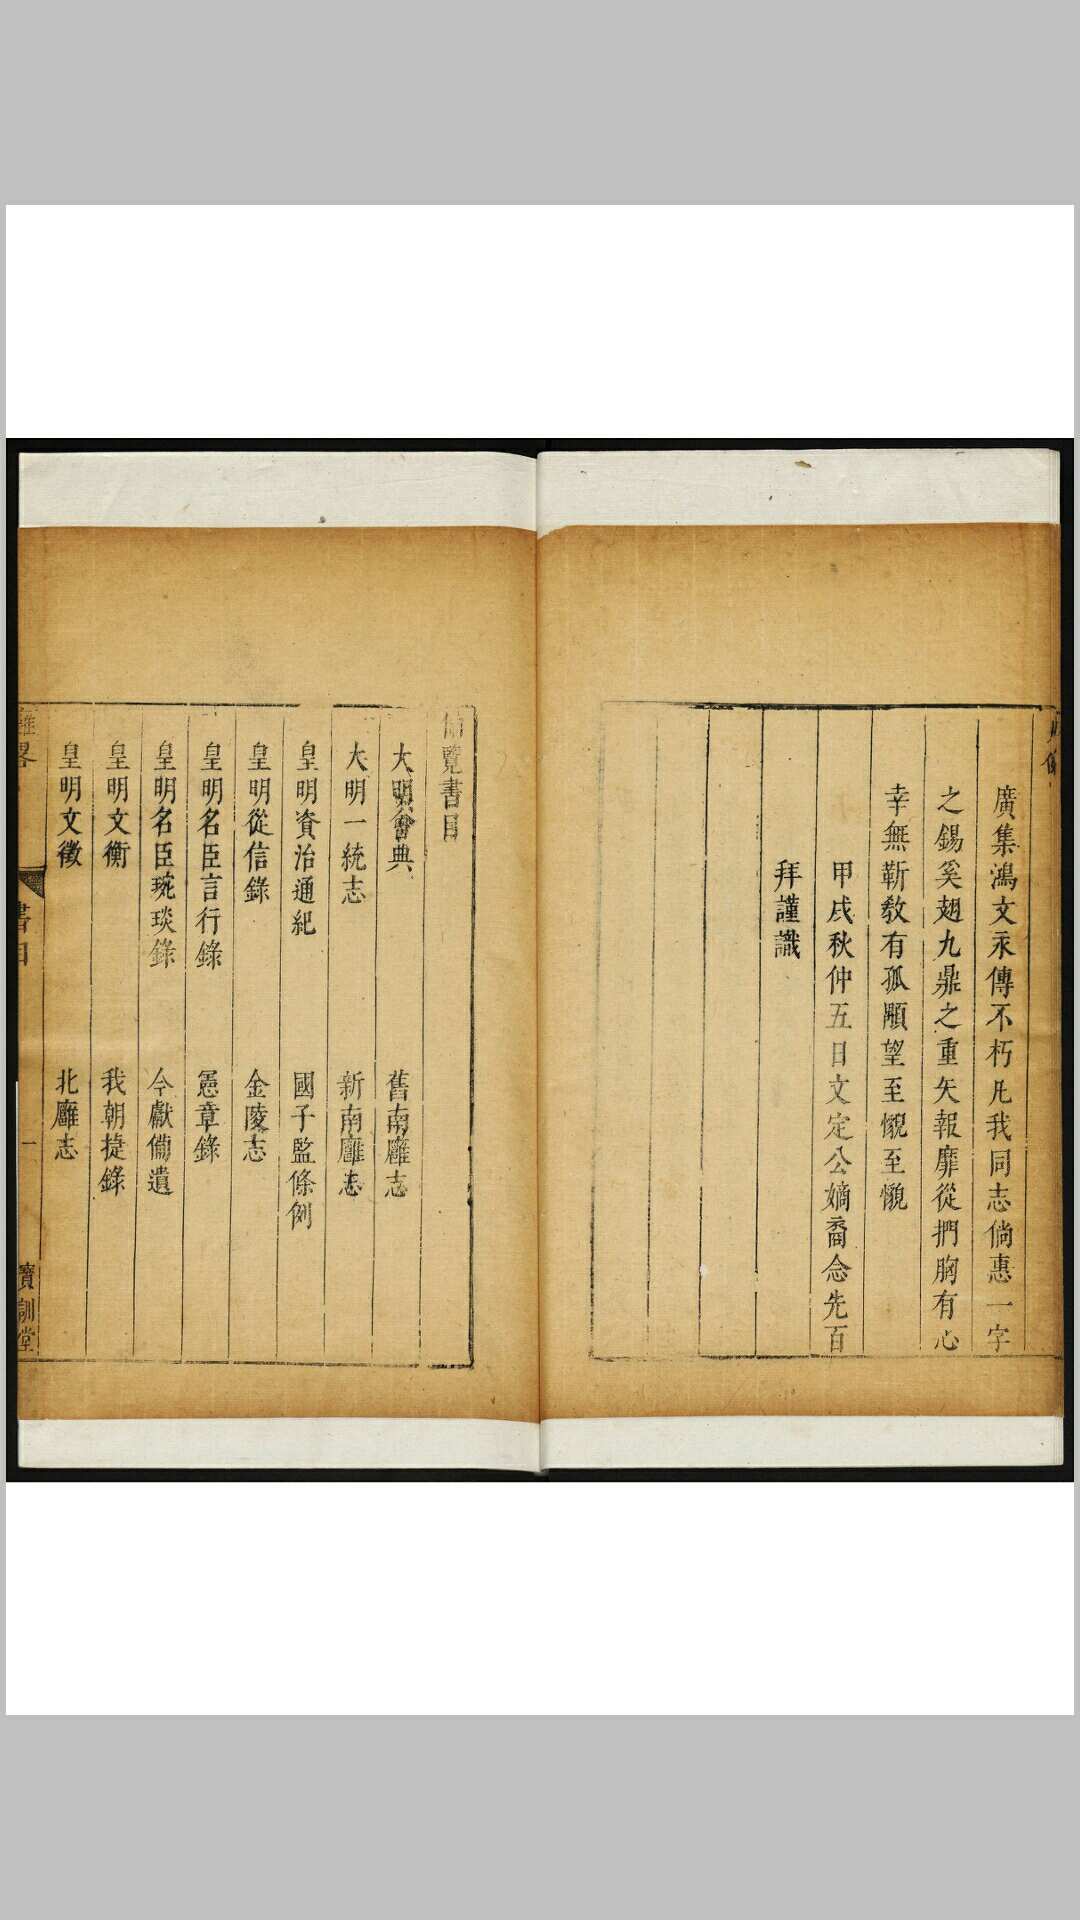 廣集鴻文永傳不朽凡我同志倘惠一字
之錫奚翅九鼎之重矢報靡從捫胸有心
幸無靳教有孤顒望至至
甲戌秋仲五日文定公嫡裔念先百
拜謹識
備覽書目
大明會典 舊南廱志
大明一統志 新南廱志
皇明資治通紀 國子監條例
皇明從信錄 金陵志
皇明名臣言行錄 憲章錄
皇明名臣琬琰錄 今獻備遺
皇明文衡 我朝捷錄
皇明文徵 北廱志
畧 書目 一 寶訓堂